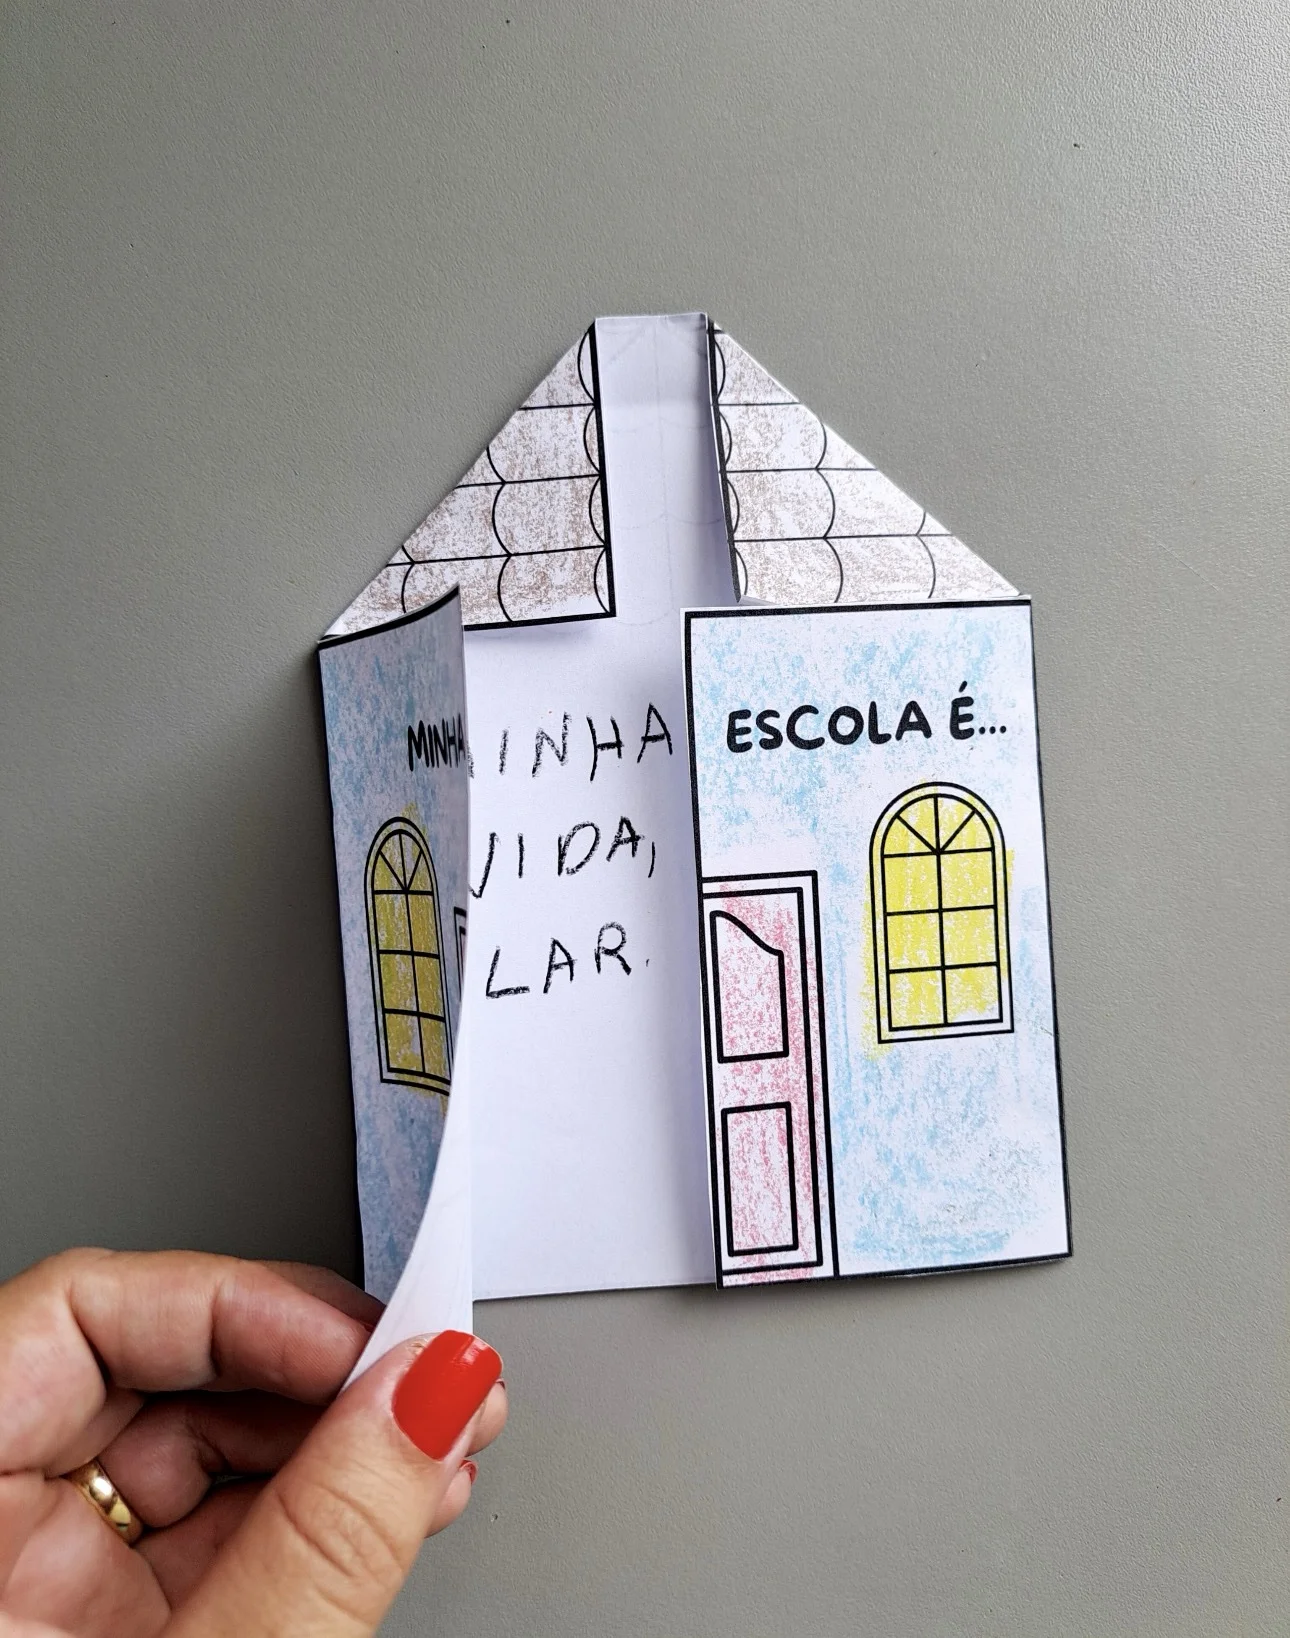 MINHA ESCOLA É...
MINHA
VIDA,
LAR.